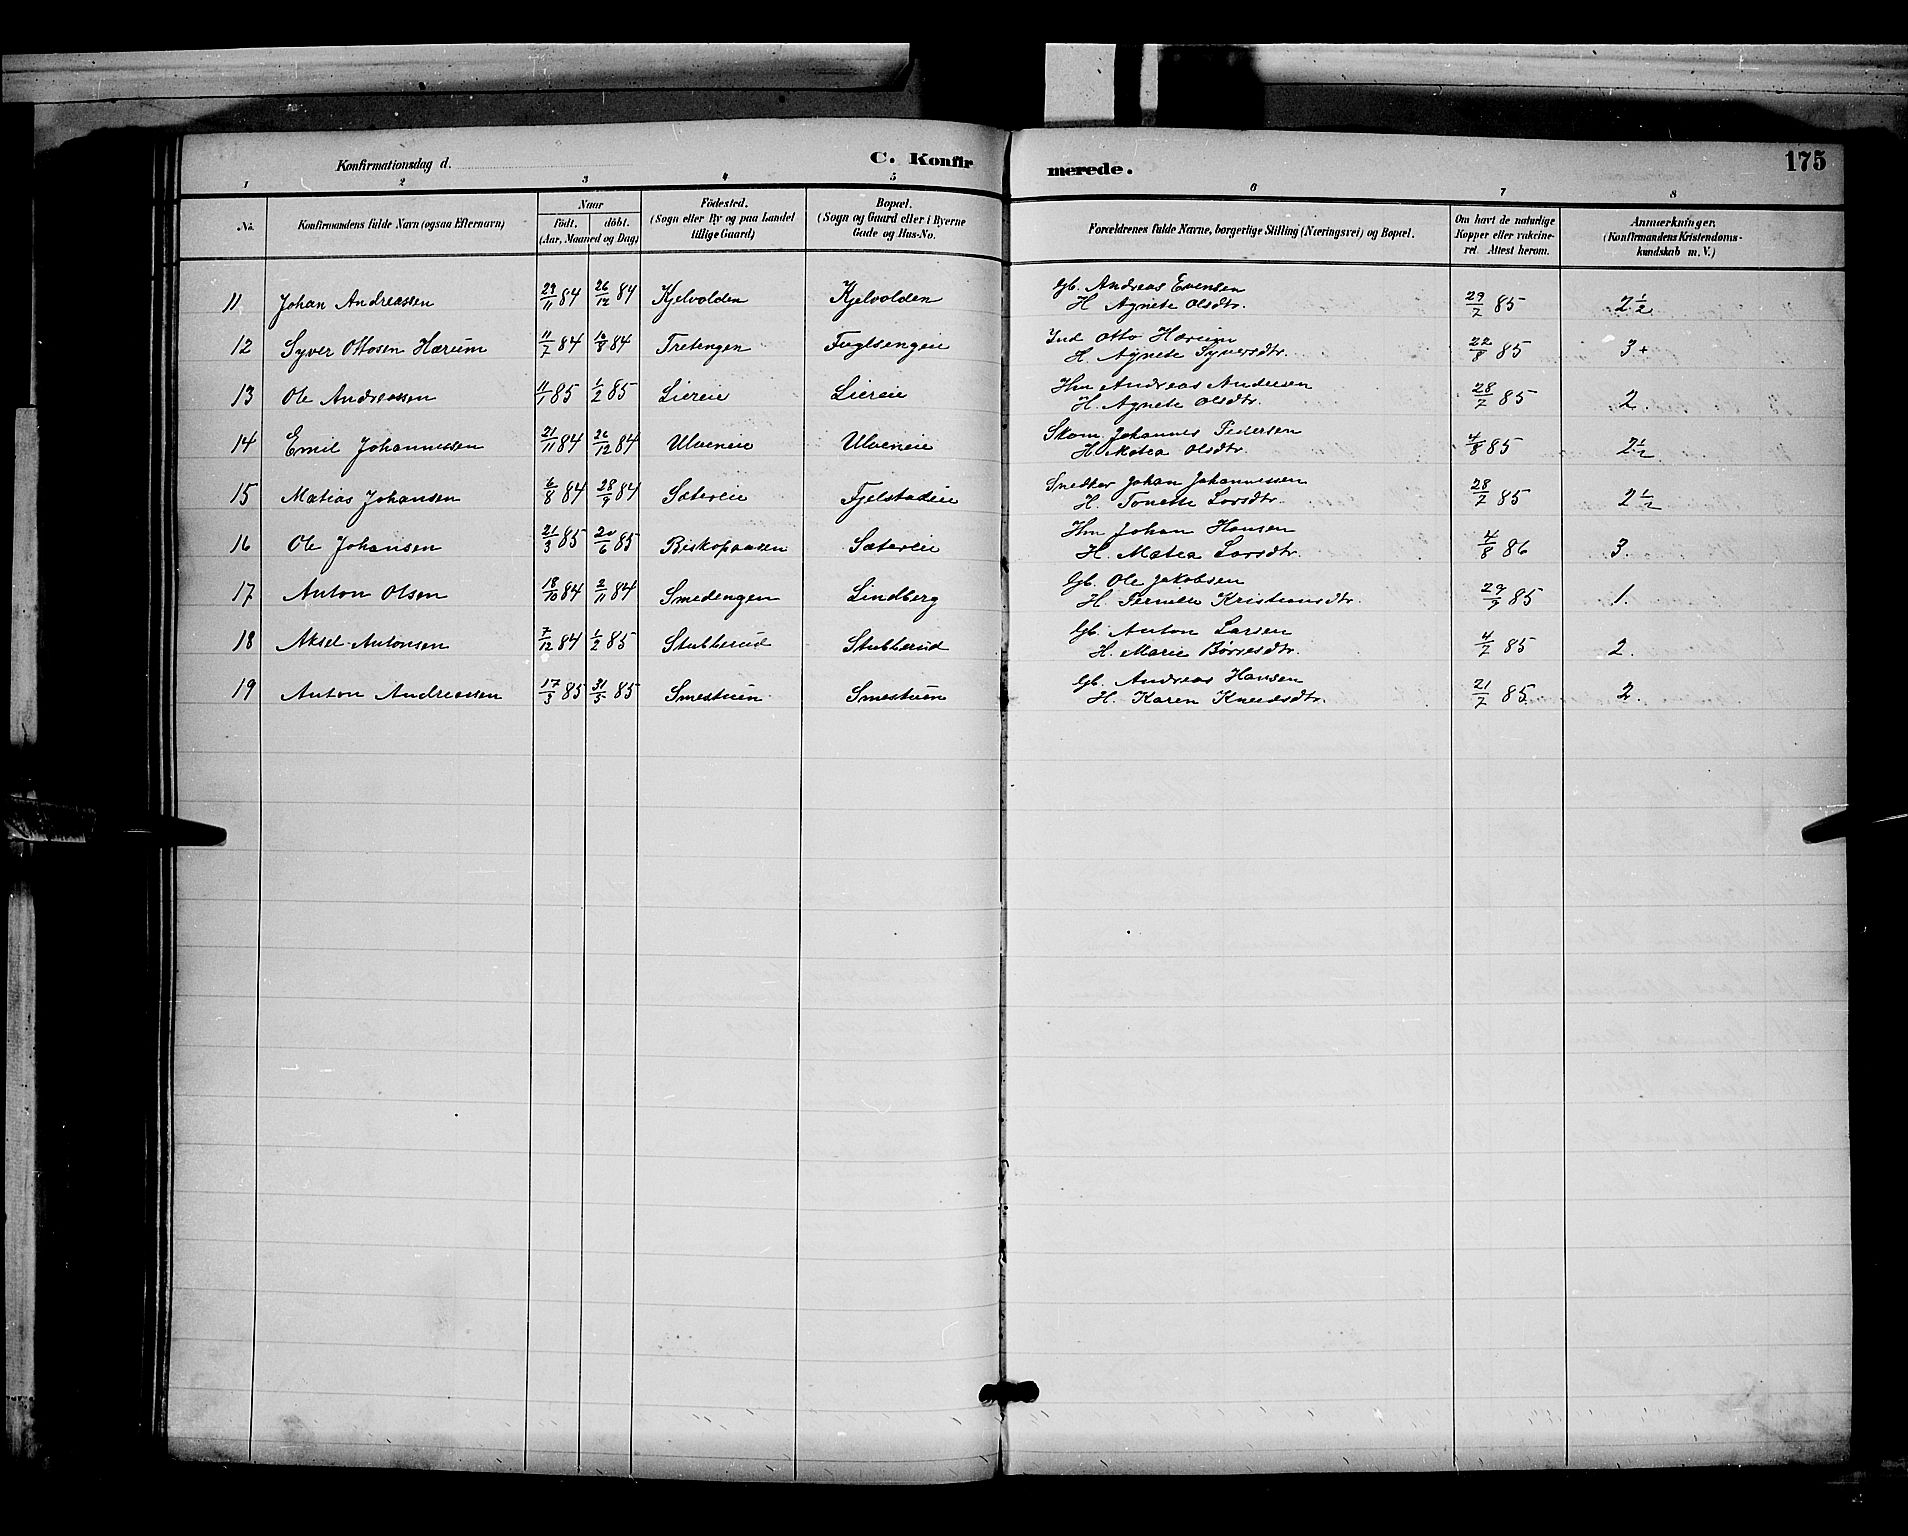 Konfirmationsdag d. C. Konfir merede. 175
1 2 3 4 5 6 7 8
No. Konfirmandens fulde Navn (ogsaa Efternavn) Naar födt. döbt. (Aar, Maaned og Dag) Födested. (Sogn eller By og paa Landet tillige Gaard) Bopæl. (Sogn og Gaard eller i Byerne Gade og Hus-No. Forældrenes fulde Navne, borgerlige Stilling (Næringsvei) og Bopæl. Om havt de naturlige Kopper eller vakcineret. Attest herom. Anmærkninger, (Konfirmandens Kristendomskundskab m. V.)
11 Johan Andreassen 29/11 84 26/12 84 Kjelvolden Kjelvolden Gb. Andreas Evensen 29/7 85 2 1/2
H. Agnete Olsdtr.
12 Syver Ottosen Hærum 11/7 84 10/8 84 Tretengen Fuglsengeie Ind Otto Hærum 22/8 85 3+
H. Agnete Syversdtr.
13 Ole Andreassen 11/1 85 1/2 85 Liereie Liereie Hm Andreas Andersen 28/7 85 2.
H. Agnete Olsdtr.
14 Emil Johannessen 21/11 84 26/12 84 Ulveneie Ulveneie Skom. Johannes Pedersen 4/8 85 2 1/2
H. Matea Olsdtr.
15 Matias Johansen 6/8 84 28/9 84 Sætereie Fjelstadeie Snedker Johan Johannessen 28/7 85 2 1/2
H. Tonette Larsdtr.
16 Ole Johansen 21/3 85 20/6 85 Biskopaasen Sætereie Hm Johan Hansen 4/8 86 3.
H. Matea Larsdtr.
17 Anton Olsen 18/10 84 2/11 84 Smedengen Lindberg Gb. Ole Jakobsen 29/9 85 1.
H. Pernille Kristiansdtr.
18 Aksel Antonsen 7/12 84 1/2 85 Stubberud Stubberud Gb. Anton Larsen 4/7 85 2.
H. Marie Børresdtr.
19 Anton Andreassen 17/3 85 31/5 85 Smestuen Smestuen Gb. Andreas Hansen 21/7 85 2.
H. Karen Knudsdtr.